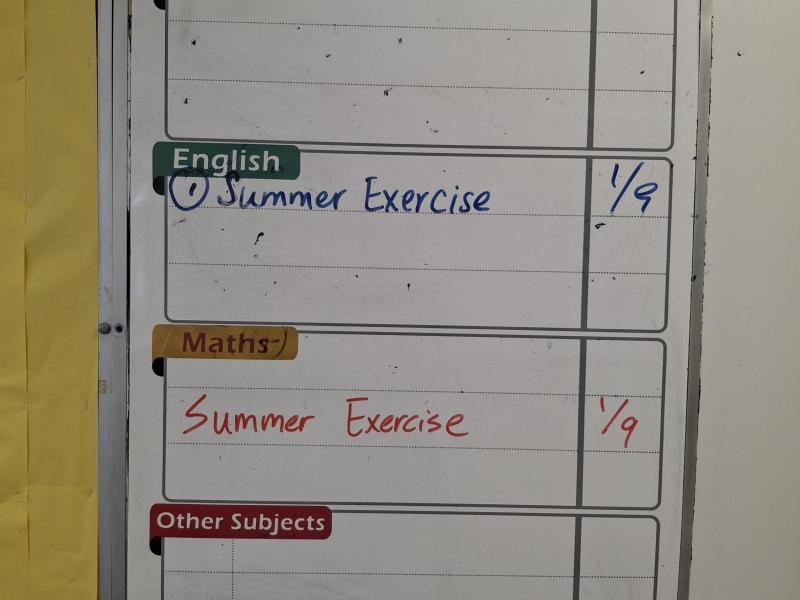 English
① Summer Exercise 1/9
Maths
Summer Exercise 1/9
Other Subjects